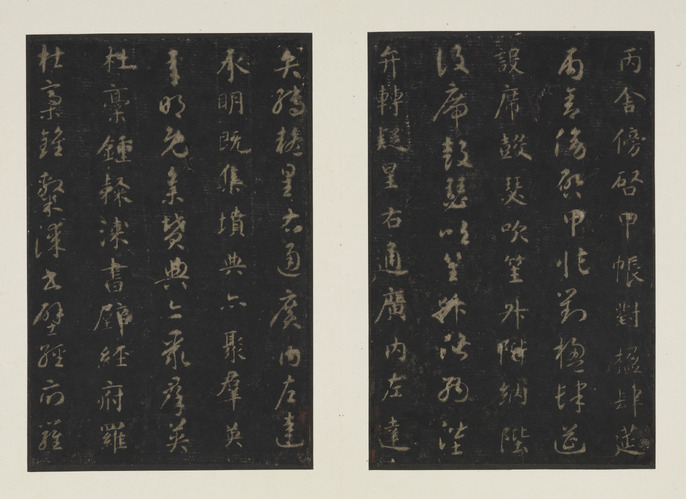 丙舍傍啓甲帳對楹肆筵
丙舍傍啓甲帳對楹肆筵
設席鼓瑟吹笙升階納陛
設席鼓瑟吹笙升階納陛
弁轉疑星右通廣內左達
弁轉疑星右通廣內左達
承明既集墳典亦聚羣英
承明既集墳典亦聚羣英
杜稾鍾隸漆書壁經府羅
杜稾鍾隸漆書壁經府羅